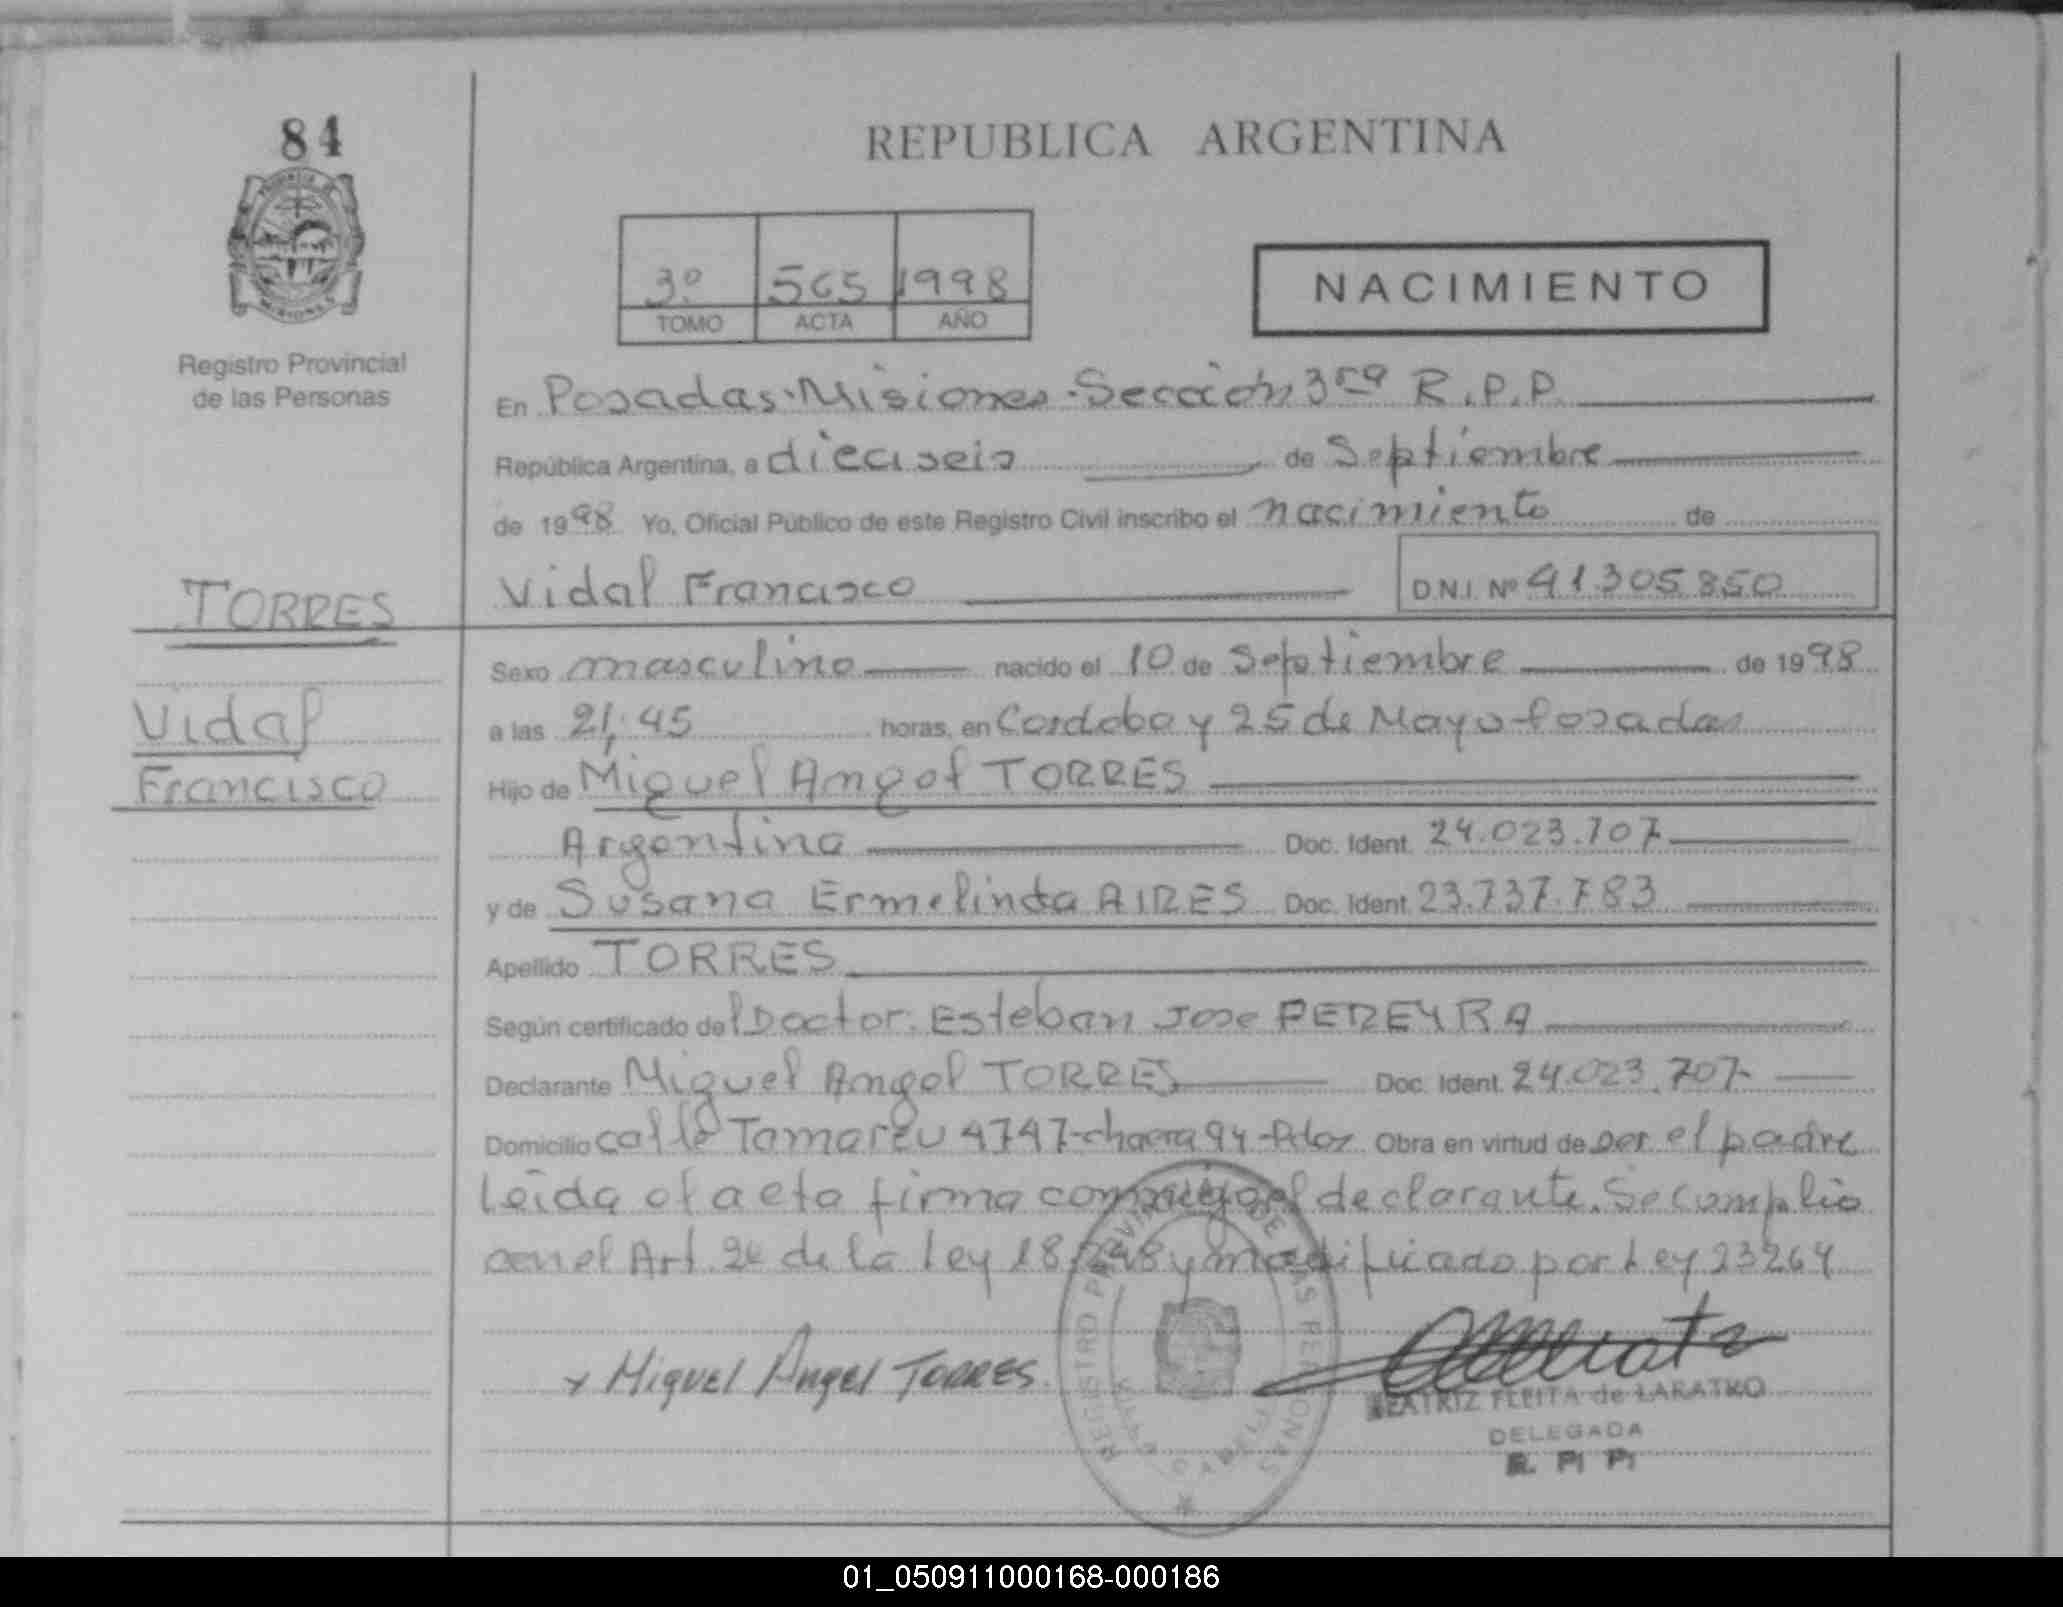 84
REPUBLICA ARGENTINA
3º 565 1998
TOMO ACTA AÑO
NACIMIENTO
Registro Provincial
de las Personas
En Posadas-Misiones-Sección 3ra R.P.P.
República Argentina, a dieciseis de Septiembre
de 1998 Yo, Oficial Público de este Registro Civil inscribo el nacimiento de
Vidal Francisco D.N.I. Nº 41.305.850
TORRES
Vidal
Francisco
Sexo masculino nacido el 10 de Septiembre de 1998
a las 21:45 horas, en Cordoba y 25 de Mayo-Posadas
Hijo de Miguel Angel TORRES
Argentina Doc. Ident. 24.023.707
y de Susana Ermelinda AIRES Doc. Ident. 23.737.783
Apellido TORRES
Según certificado del Doctor: Esteban Jose PEREYRA
Declarante Miguel Angel TORRES Doc. Ident. 24.023.707
Domicilio calle 4747-chacra 94-Pdas Obra en virtud de ser el padre
Leida el acta firma conmigo el declarante. Se complio
con el Art. de la Ley 18.248 y modificado por Ley 23264
x Miguel Angel TORRES
REGISTRO PROVINCIAL DE LAS PERSONAS
BEATRIZ FLEITA de LARATRO
DELEGADA
R. P. P.
01_050911000168-000186